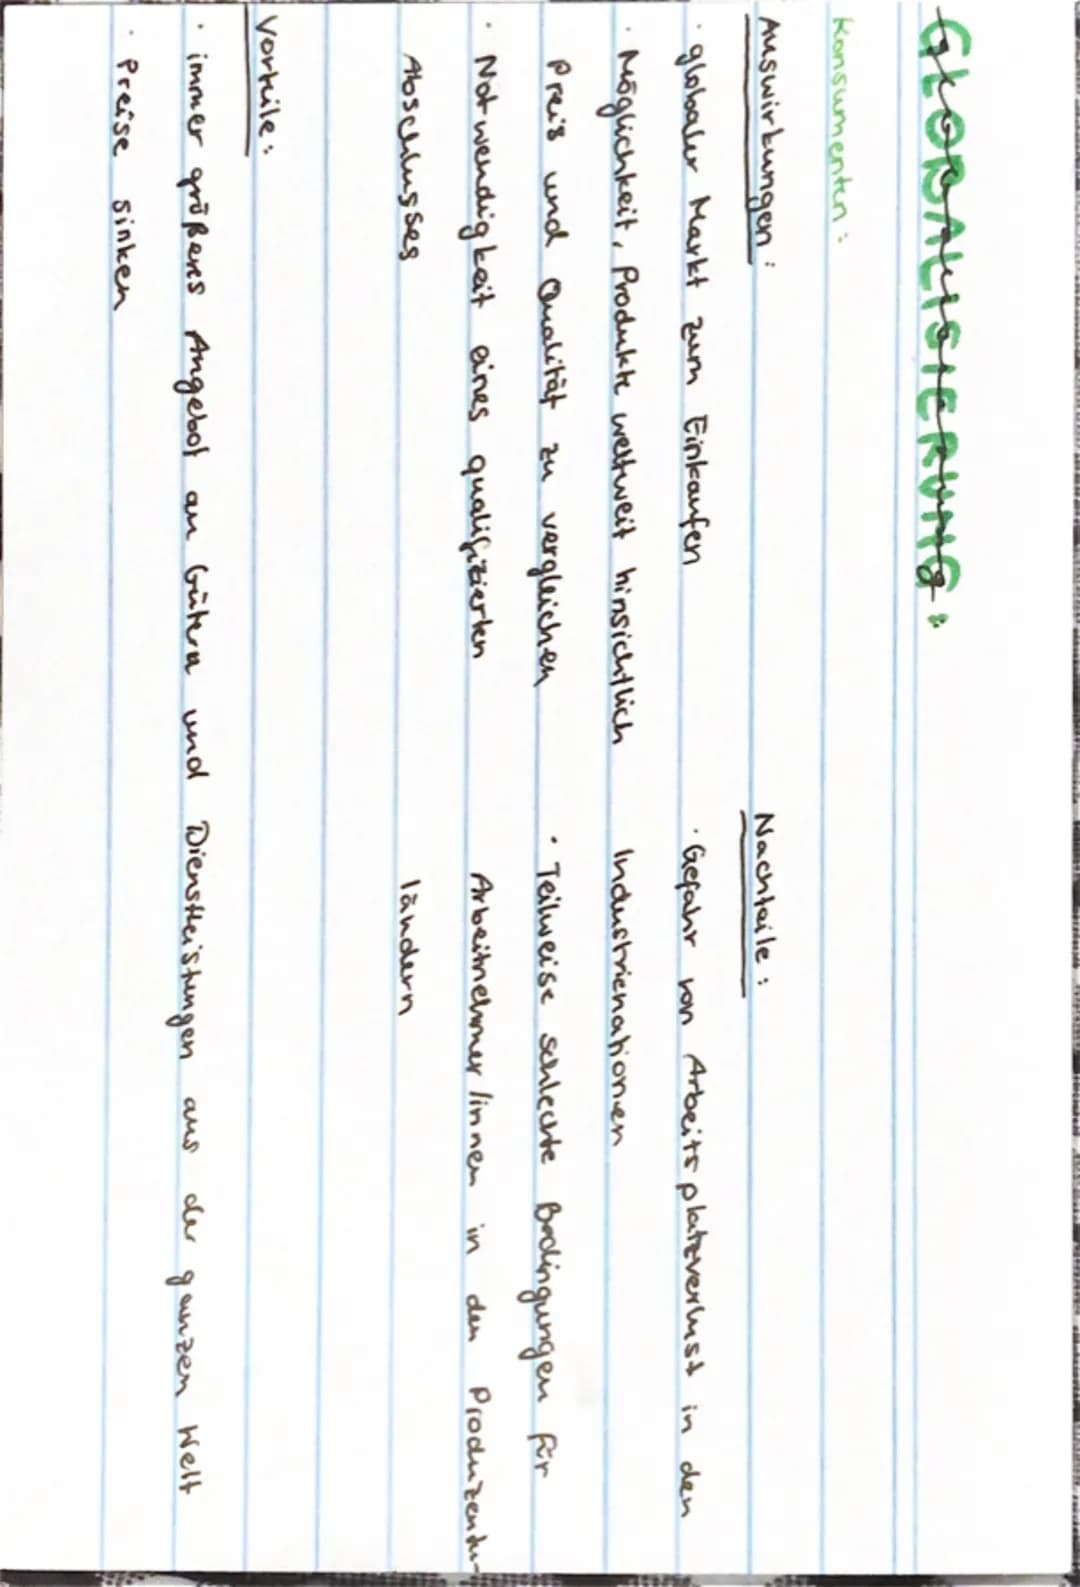 GLOBALISIERUNG:
Konsumenten:
Auswirkungen:
· globaler Markt zum Einkaufen
· Möglichkeit, Produkte weltweit hinsichtlich
Preis und Qualität zu vergleichen
· Notwendigkeit eines qualifizierten
Abschlusses
Nachteile:
· Gefahr von Arbeitsplatzverlust in den
Industrienationen
· Teilweise schlechte Bedingungen für
Arbeitnehmer/innen in den Produzenten-
ländern
Vorteile:
· immer größeres Angebot an Gütern und Dienstleistungen aus der ganzen Welt
· Preise sinken